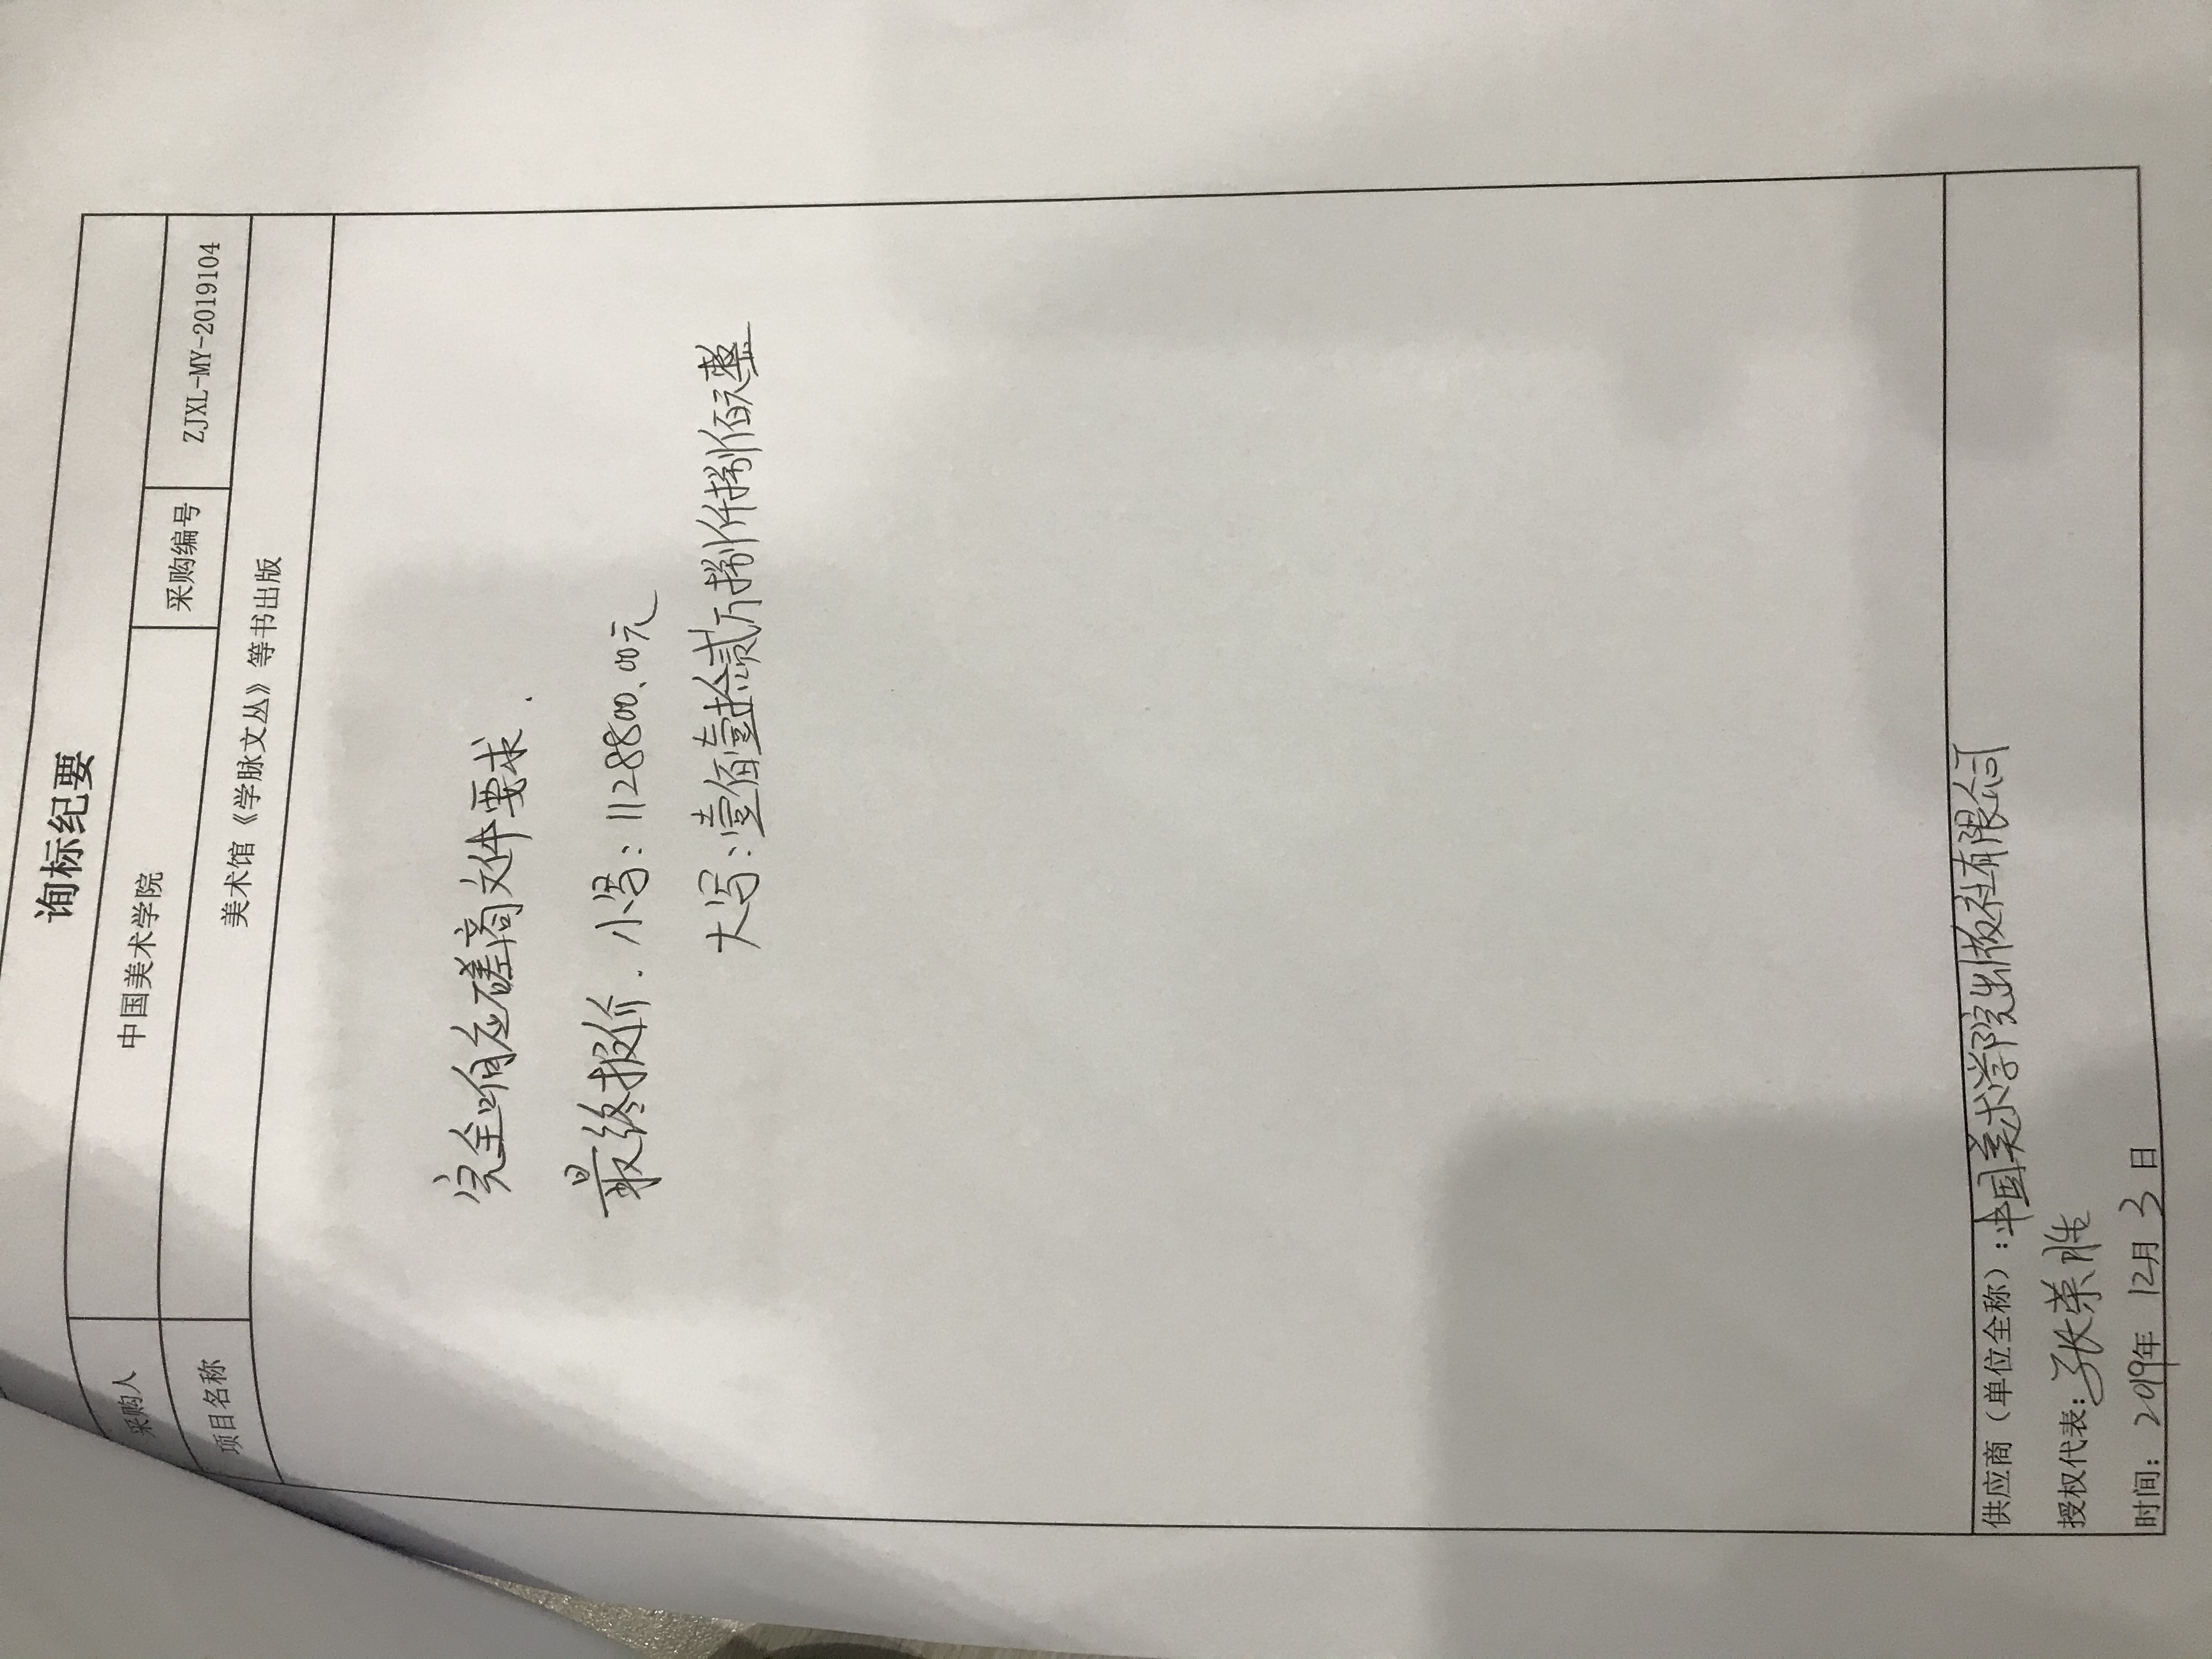 询标纪要
采购人 中国美术学院 采购编号 ZJXL-MY-2019104
项目名称 美术馆《学脉文丛》等书出版
完全响应磋商文件要求.
最终报价. 小写: 1128800.00元
大写: 壹佰壹拾贰万捌仟捌佰元整
供应商（单位全称）: 中国美术学院出版社有限公司
授权代表: 张荣胜
时间: 2019年 12月 3日